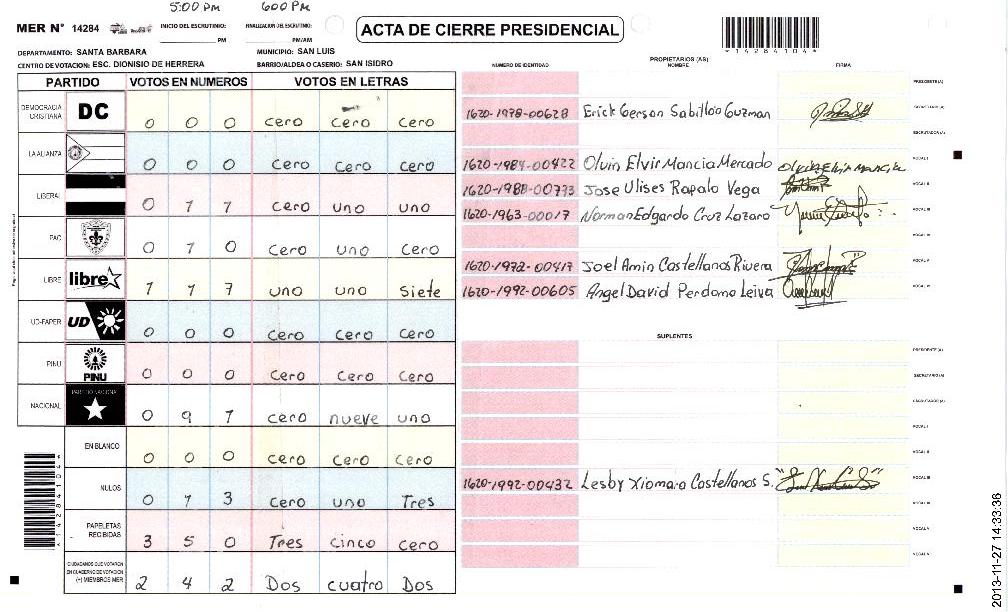 5:00 PM 600 PM
MER N° 14284 INICIO DEL ESCRUTINIO: PM FINALIZACION DEL ESCRUTINIO: PM/AM
ACTA DE CIERRE PRESIDENCIAL
*14284104*
DEPARTAMENTO: SANTA BARBARA MUNICIPIO: SAN LUIS
CENTRO DE VOTACION: ESC. DIONISIO DE HERRERA BARRIO/ALDEA O CASERIO: SAN ISIDRO
PARTIDO VOTOS EN NUMEROS VOTOS EN LETRAS
DEMOCRACIA CRISTIANA DC 0 0 0 cero cero cero
LA ALIANZA 0 0 0 cero cero cero
LIBERAL 0 1 1 cero uno uno
PAC 0 1 0 cero uno cero
LIBRE libre 1 1 7 uno uno siete
UD-FAPER UD 0 0 0 cero cero cero
PINU PINU 0 0 0 cero cero cero
NACIONAL PARTIDO NACIONAL 0 9 1 cero nueve uno
EN BLANCO 0 0 0 cero cero cero
NULOS 0 1 3 cero uno Tres
PAPELETAS RECIBIDAS 3 5 0 Tres cinco cero
CIUDADANOS QUE VOTARON EN CUADERNO DE VOTACION (+) MIEMBROS MER 2 4 2 Dos cuatro Dos
PROPIETARIOS (AS)
NUMERO DE IDENTIDAD NOMBRE FIRMA
PRESIDENTE(A)
1620-1978-00628 Erick Gerson Sabillon Guzman SECRETARIO(A)
ESCRUTADOR(A)
1620-1984-00422 Olvin Elvir Mancia Mercado Olvin Elvir Mancia VOCAL I
1620-1988-00773 Jose Ulises Rapalo Vega VOCAL II
1620-1963-00017 Norman Edgardo Cruz Lazaro VOCAL III
VOCAL IV
1620-1972-00417 Joel Amin Castellanos Rivera VOCAL V
1620-1992-00605 Angel David Perdomo Leiva VOCAL VI
SUPLENTES
PRESIDENTE(A)
SECRETARIO(A)
ESCRUTADOR(A)
VOCAL I
VOCAL II
1620-1992-00432 Lesby Xiomara Castellanos S. VOCAL III
VOCAL IV
VOCAL V
VOCAL VI
*14284104*
2013-11-27 14:33:36